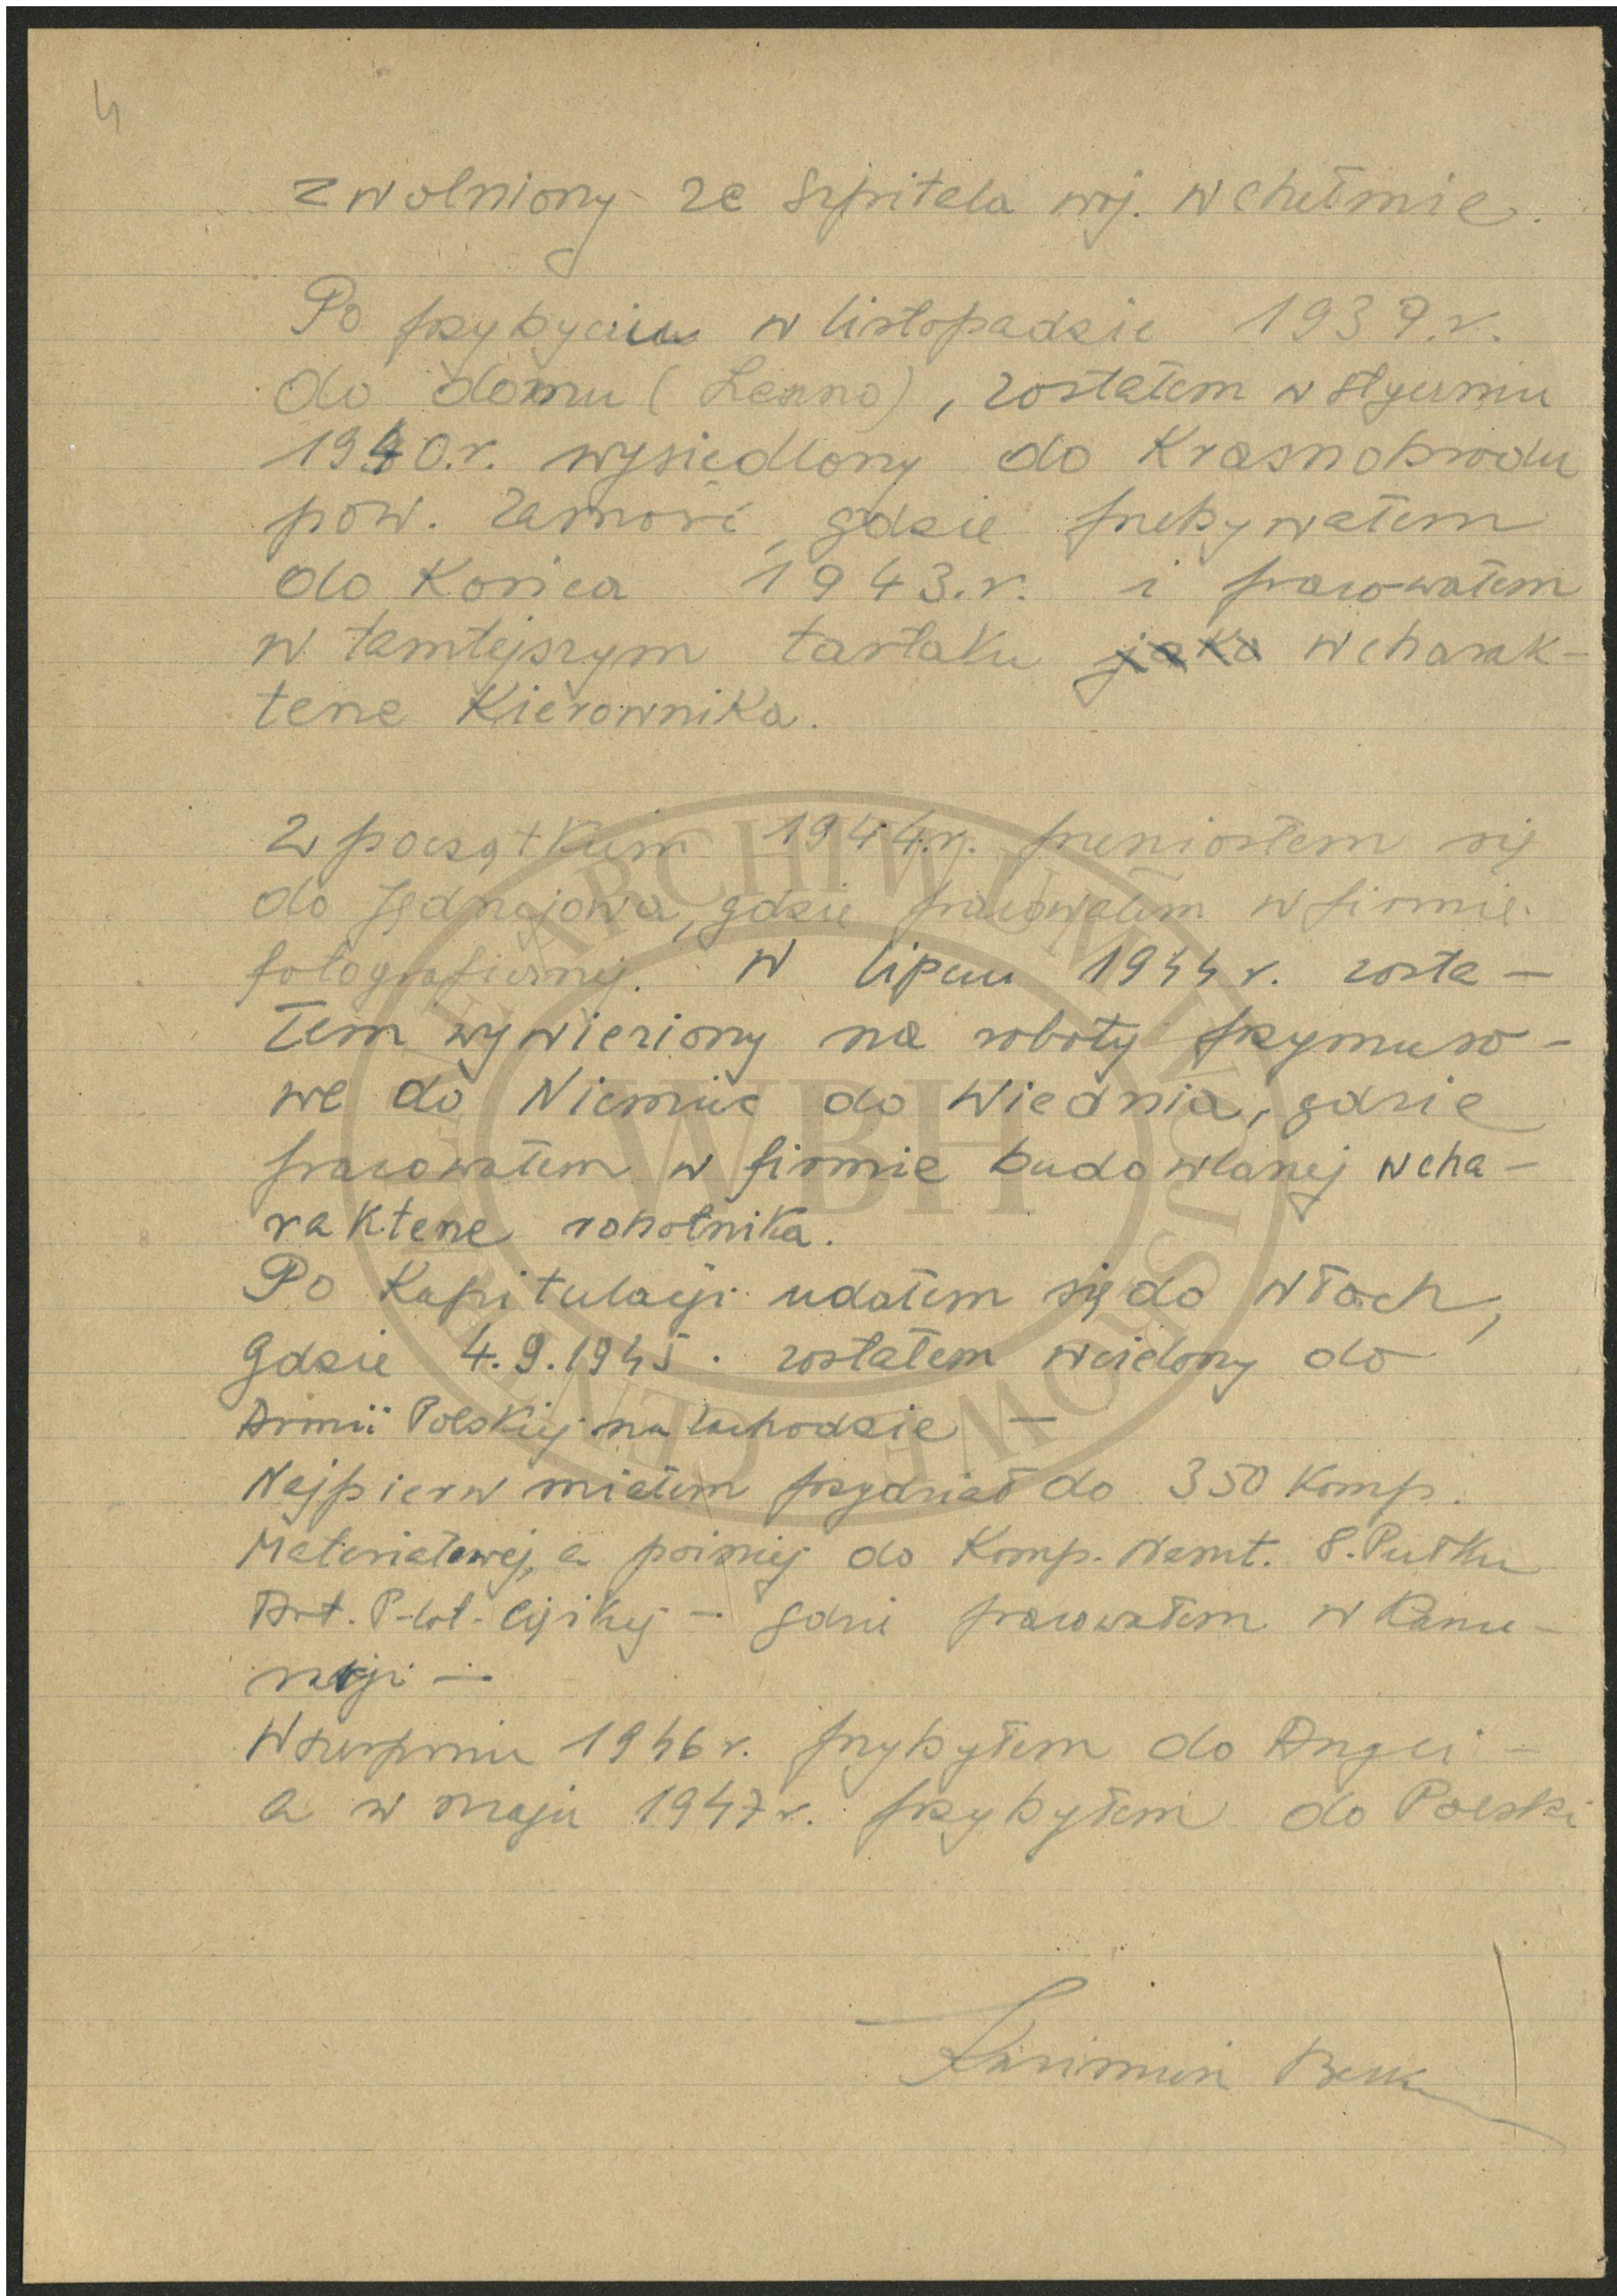 4
zwolniony ze szpitala woj. w Chełmie.
Po przybyciu w listopadzie 1939.r.
do domu (Leszno), zostałem w styczniu
1940.r. wysiedlony do Krasnobrodu
pow. Zamość, gdzie przebywałem
do Końca 1943.r. i pracowałem
w tamtejszym tartaku jako w charak-
terze Kierownika.
Z początkiem 1944.r. przeniosłem się
do Jędrzejowa, gdzie pracowałem w firmie
fotograficznej. W lipcu 1944 r. zosta-
łem wywieziony na roboty przymuso-
we do Niemiec do Wiednia, gdzie
pracowałem w firmie budowlanej w cha-
rakterze robotnika.
Po Kapitulacji udałem się do Włoch,
gdzie 4.9.1945. zostałem wcielony do
Armii Polskiej na Zachodzie —
Najpierw miałem przydział do 350 Komp.
Materiałowej, a później do Komp. Warszt. 8. Pułku
Art. P-lot. Ciężkiej — gdzie pracowałem w
W sierpniu 1946 r. przybyłem do Anglii —
a w maju 1947 r. przybyłem do Polski
Kazimierz
ARCHIWUM
WBH